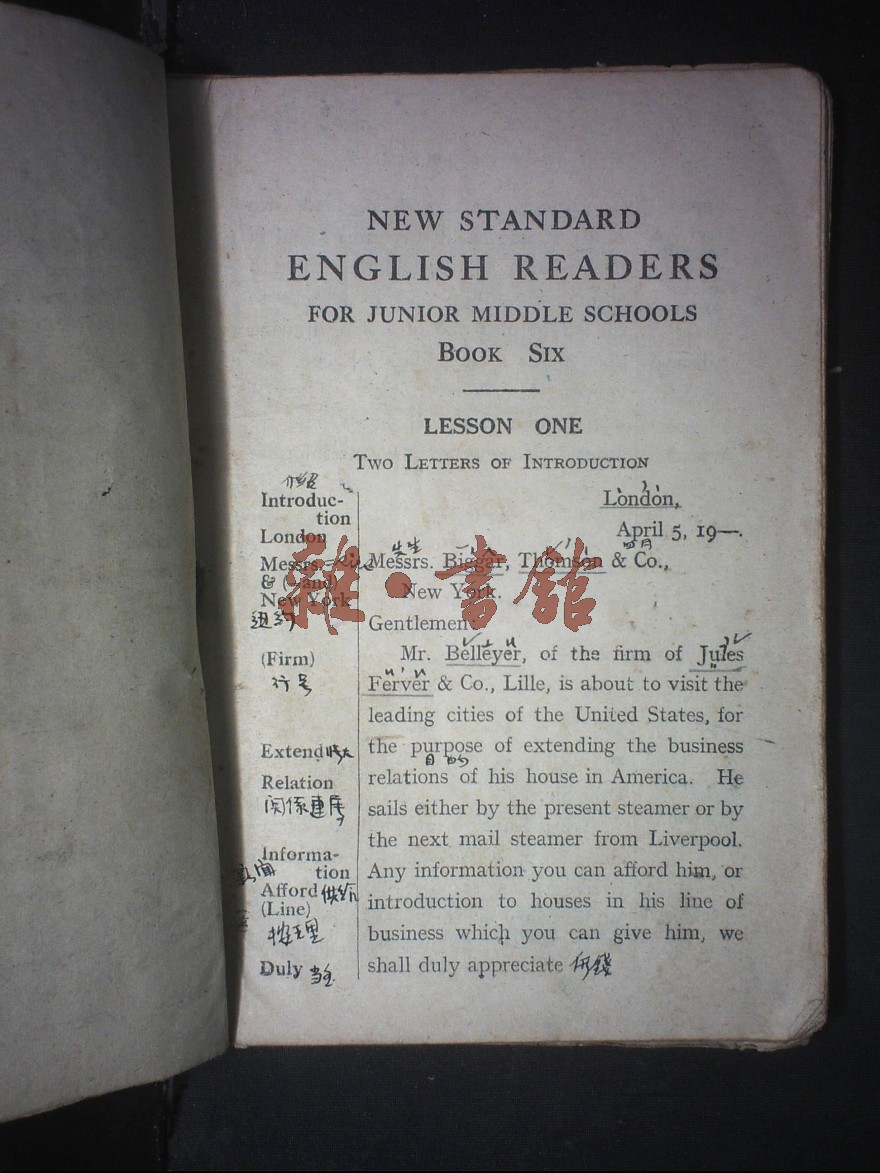 NEW STANDARD
ENGLISH READERS
FOR JUNIOR MIDDLE SCHOOLS
BOOK SIX
LESSON ONE
TWO LETTERS OF INTRODUCTION
介紹
Introduc-
tion
London
Messrs.
& (=and)
New York
纽约
(Firm)
行号
Extend
Relation
関係
Informa-
tion
Afford 供给
(Line)
Duly
London,
April 5, 19—.
四月
先生
Messrs. Biggar, Thomson & Co.,
New York.
Gentlemen:
Mr. Belleyer, of the firm of Jules
Ferver & Co., Lille, is about to visit the
leading cities of the United States, for
the purpose of extending the business
目的
relations of his house in America. He
sails either by the present steamer or by
the next mail steamer from Liverpool.
Any information you can afford him, or
introduction to houses in his line of
business which you can give him, we
shall duly appreciate
雜·書館